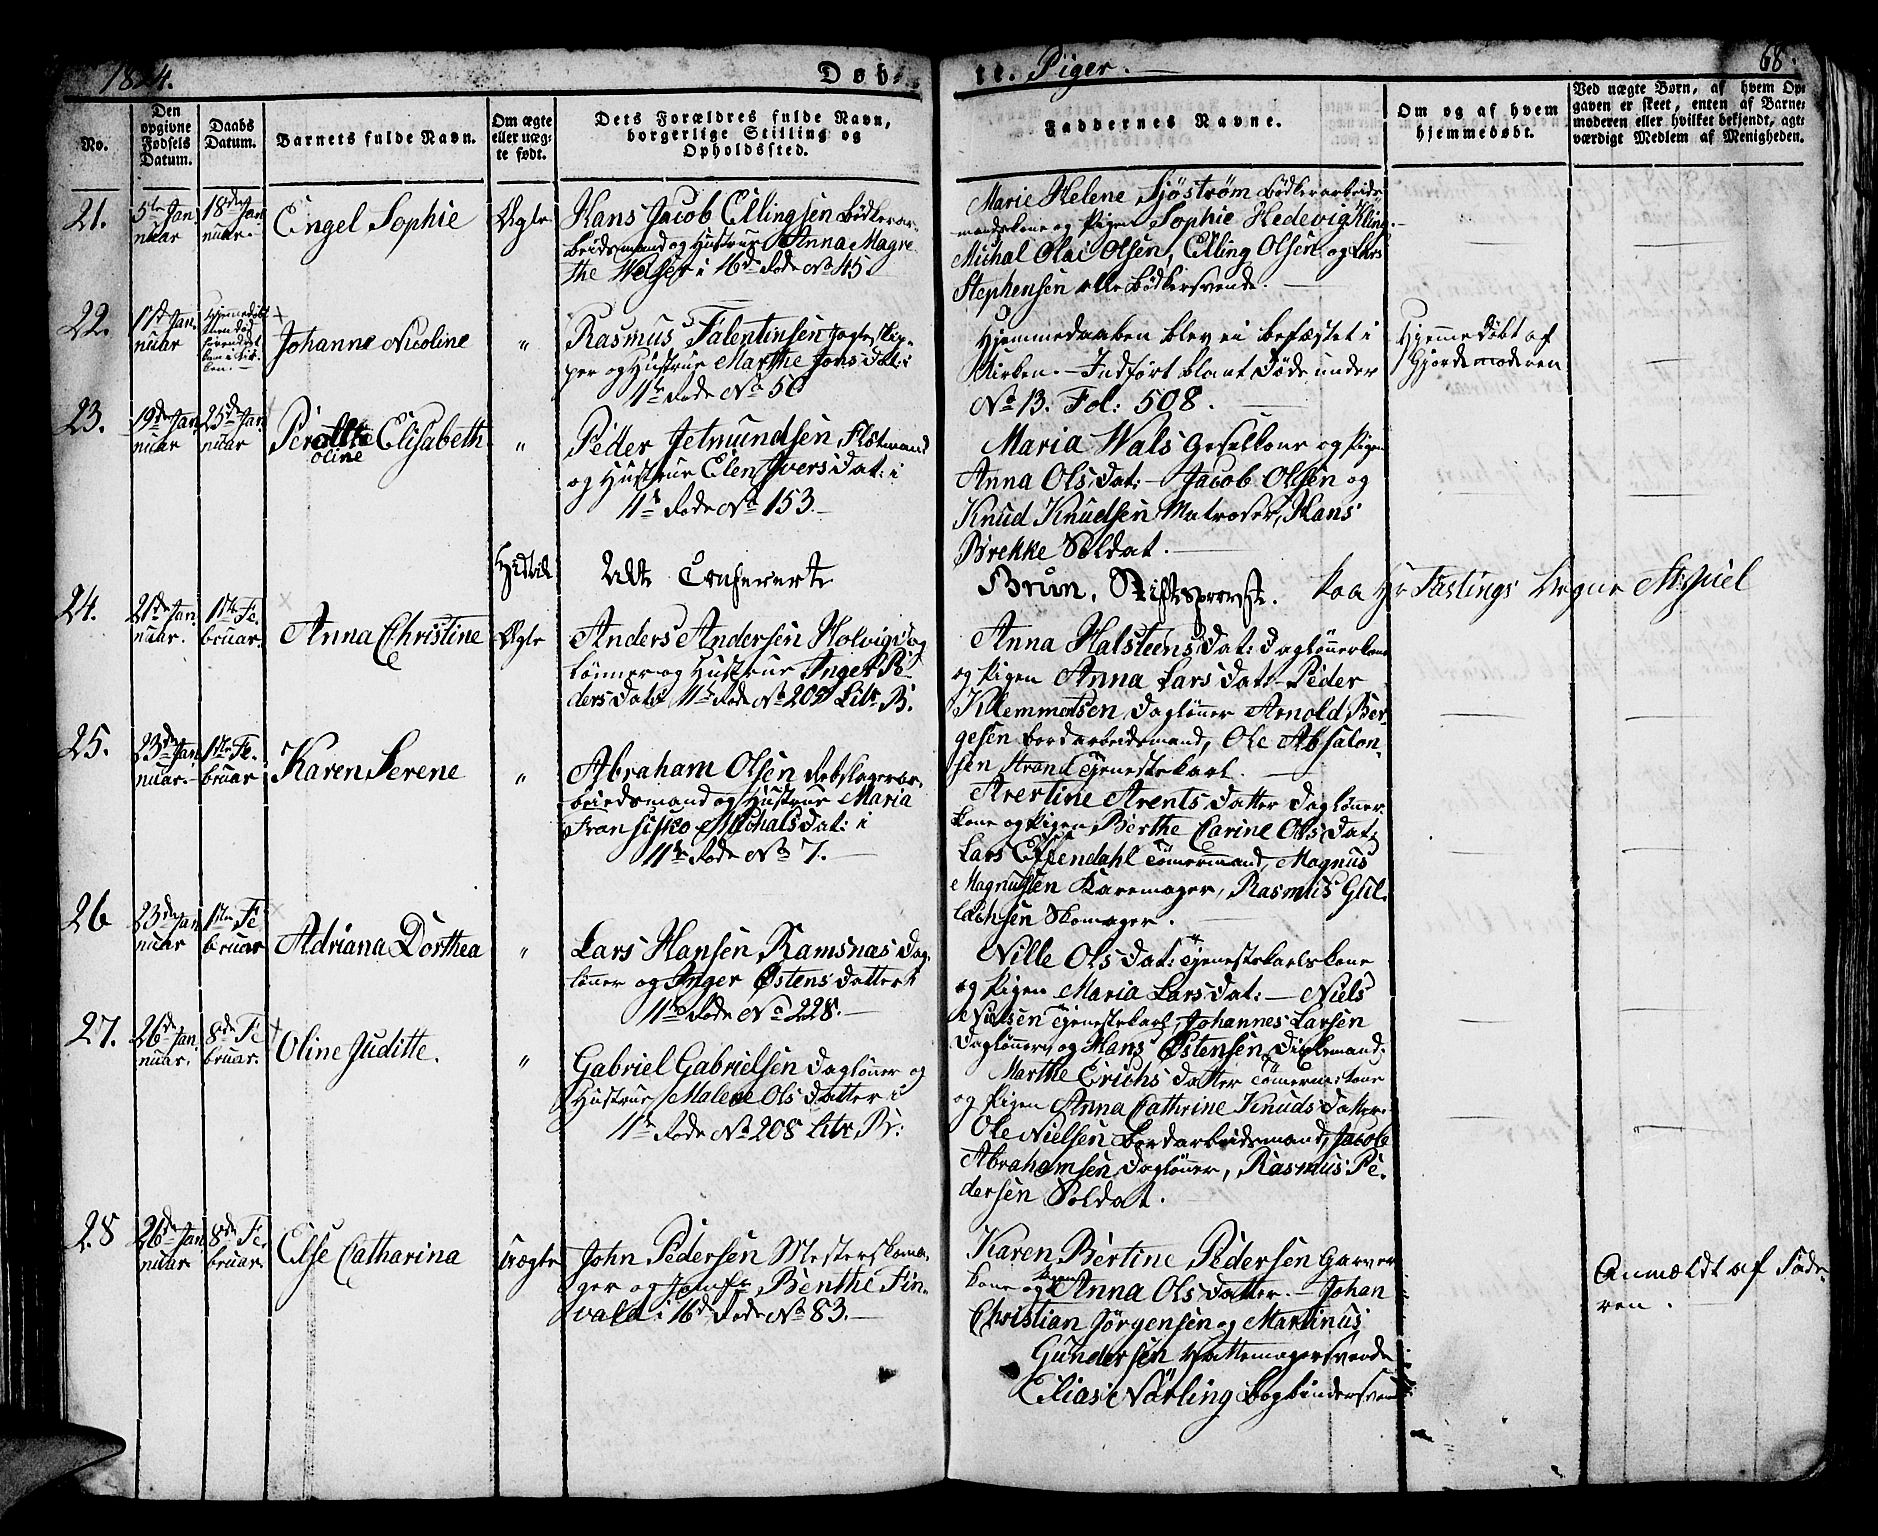 1824.
Døbte. Piger.
68.
No.
Den opgivne Fødsels Datum.
Daabs Datum.
Barnets fulde Navn.
Om ægte eller uægte født.
Dets Forældres fulde Navn, borgerlige Stilling og Opholdssted.
Faddernes Navne.
Om og af hvem hjemmedøbt.
Ved uægte Børn, af hvem Opgaven er skeet, enten af Barnemoderen eller hvilket bekjendt, agtværdigt Medlem af Menigheden.
21.
5te Jan
nuar
18de Jan
nuar.
Engel Sophie
Ægte
Hans Jacob Ellingsen Bødkerar-
beidsmand og Hustrue Anna Magre
the Welser i 16de Rode No 45
Marie Helene Sjöström Bödkerarbeids
mandskone og Pigen Sophie Hedevig Kling.
Michal Olai Olsen, Elling Olsen og
Stephensen alle Bödkersvende.
22.
17de Jan.
nuar
Hjemmedøbt
Johanne Nicoline
"
Rasmus Falentinsen Jagteskip-
per og Hustrue Marthe Jons Dat: i
11te Rode No 50
Hjemmedaaben blev ei befæstet i
Kirken. - Indført blant Døde under
No 13. Fol: 508.
Hjemmedøbt af
Gjordemoderen
23.
19de Jan
nuar
25de Jan
nuar
Peroline Elisabeth
"
Peder Jetmundsen Flötmand
og Hustrue Elen Ivers Dat: i
11te Rode No 153.
Maria Wals Geselkone og Pigen
Anna Ols Dat: - Jacob Olsen og
Knud Knudsen Matroser, Hans
Brekke Soldat.
Udte Confererte
Brun, Stiftsprovst. paa Hr Tastings Vegne
24.
21de Jan
nuar.
1ste Fe
bruar.
Anna Christine
Ægte
Anders Andersen Holvig Dag
lönner og Hustrue Inger Pe-
ders Dat: 11te Rode No 208 Litr. B.
Anna Halsteens Dat: Daglönerkone
og Pigen Anna Lars Dat: - Peder
Klemmetsen Daglönner Arnold Bör
gesen Bordarbeidsmand, Ole Absalon-
sen Strand Tjenestekarl.
25.
23de Jan
nuar.
1ste Fe.
bruar
Karen Serene
"
Abraham Olsen Rebslagerar-
beidsmand og Hustrue Maria
Fransisko Michals Dat: i
11te Rode No 7.
Avertine Arents Datter Daglöner
kone og Pigen Berthe Carine Ols Dat:
Lars Effendahl Tömermand, Magnus
Magnussen Karemager, Rasmus Gul-
lachsen Skomager.
26
23de Jan
nuar
1ste Fe
bruar
Adriana Dorthea
"
Lars Hansen Ramsnas Dag
lönner og Inger Østens Datter i
11te Rode No 228.
Nille Ols Dat: Tjenestekarlskone
og Pigen Maria Lars Dat: - Niels
Nielsen Tjenestekarl, Johannes Larsen
Daglönner, og Hans Østensen
27.
26de Jan.
nuar.
8de Fe
bruar.
Oline Juditte.
"
Gabriel Gabrielsen Daglöner og
Hustrue Malene Ols Datter i
11te Rode No 208 Litr B:
Marthe Erichs Datter Tömermkone
og Pigen Anna Cathrine Knuds Datter.
Ole Nielsen Bordarbeidsmand, Jacob
Abrahamsen Daglöner, Rasmus Pe-
dersen Soldat.
28
26de Jan
nuar
8de Fe.
bruar.
Else Catharina
Uægte
John Pedersen Mesterskoma-
ger og Jomfr. Benthe Fin-
vald i 16de Rode No 83.
Karen Bertine Pedersen Garver
kone og Anna Ols Datter. - Johan
Christian Jörgensen og Martinus
Gundersen Hattemagersvende
Elias Nörling Bogbindersvend
Anmældt af Fade-
ren.